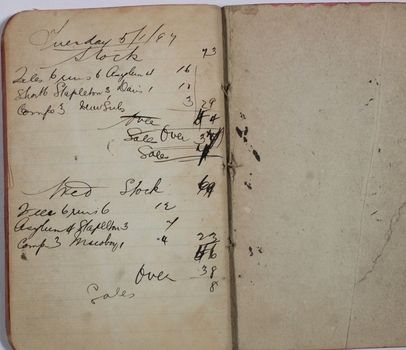 Tuesday 5/1/97
Stock 73
Files 6 runs 6 Asylum 4 16
Short 6 Stapleton 3, Davis 1 10
Comps 3 New Subs 3 29
Over 44
Sales Over
Sales
Wed Stock 69
Files 6 runs 6 12
Asylum 4 Stapleton 3 7
Comps 3 1 4 23
46
Over 38
Sales 8